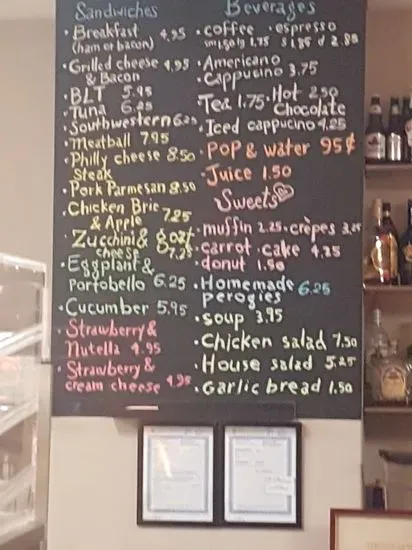 Sandwiches
• Breakfast 4.95
(ham or bacon)
• Grilled cheese 4.95
& Bacon
• BLT 5.95
• Tuna 6.25
• Southwestern 6.25
• Meatball 7.95
• Philly cheese 8.50
Steak
• Pork Parmesan 8.50
• Chicken Brie
& Apple 7.25
• Zucchini & goat
cheese 7.75
• Eggplant &
Portobello 6.25
• Cucumber 5.95
• Strawberry &
Nutella 4.95
• Strawberry &
cream cheese 4.95
Beverages
• coffee • espresso
sm 1.50 lg 1.75 S 1.85 d 2.85
• Americano
• Cappucino 3.75
• Tea 1.75 • Hot 2.50
Chocolate
• Iced cappucino 4.25
• POP & water 95¢
• Juice 1.50
Sweets
• muffin 2.25 • crêpes
• carrot cake 4.25
• donut 1.50
• Homemade
perogies 6.25
• soup 3.95
• Chicken salad 7.50
• House salad 5.25
• Garlic bread 1.50